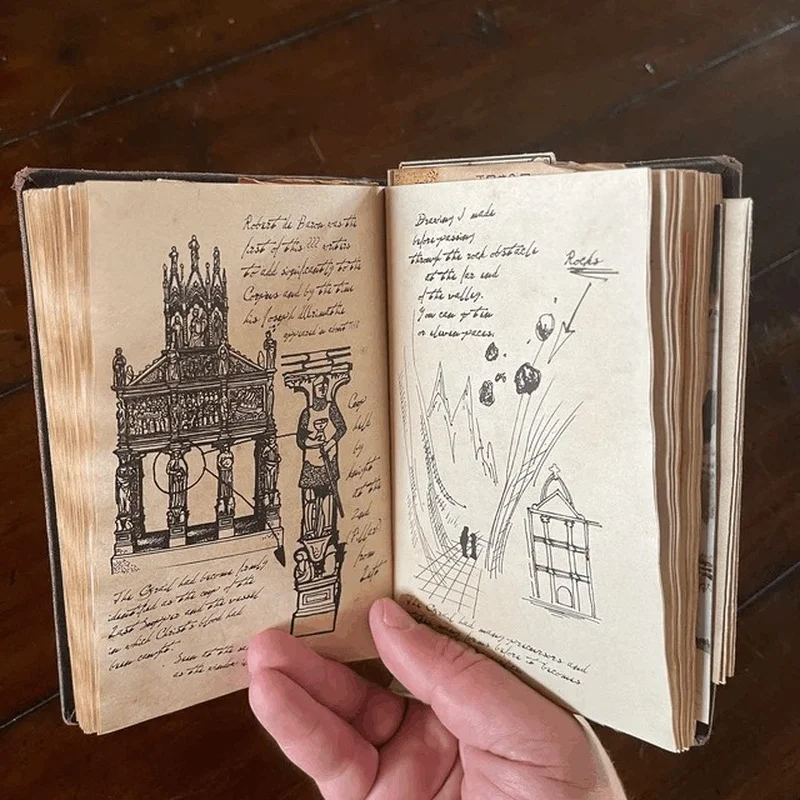 Robert de Boron was the
first of this ??? writers
to add significantly to the
Corpus and by the time
his Joseph d'Arimathe
appeared in about
Cup
held
by
knight
at the
2nd
(Pillar)
from
Left
The Grail had become firmly
identified as the cup of the
Last Supper and the vessel
in which Christ's blood had
been caught.
Drawing I made
before passing
through the rock obstacle
at the far end
of the valley.
You can go ten
or eleven paces.
Rocks
The Grail had many precursors and
before it becomes